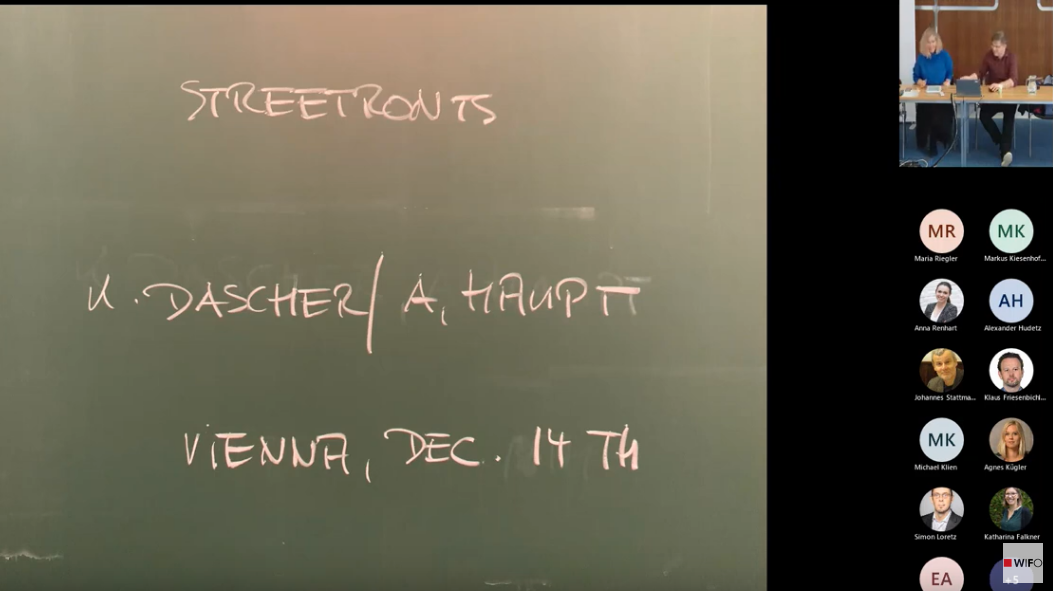 STREETRONTS
K. DASCHER/ A. HAUPT
VIENNA, DEC. 14 TH
MR
MK
Maria Riegler
Markus Kiesenhof...
AH
Anna Renhart
Alexander Hudetz
Johannes Stattma...
Klaus Friesenbichl...
MK
Michael Klien
Agnes Kügler
Simon Loretz
Katharina Falkner
WIFO
EA
+5